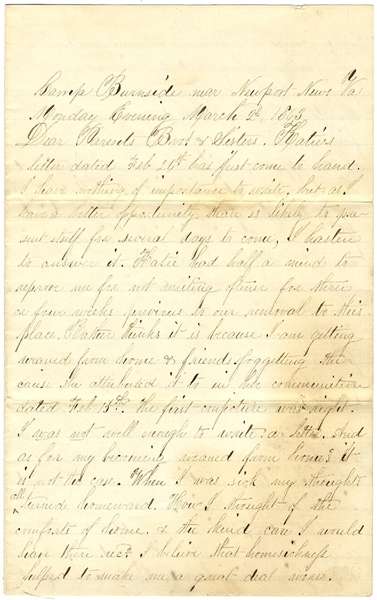 Camp Burnside near Newport News Va
Monday Evening March 2d 1863
Dear Parents Bros. & Sisters. Katies
letter dated Feb 26th has just come to hand.
I have nothing of importance to write, but as I
have a better opportunity than is likely to pre-
sent itself for several days to come, I hasten
to answer it. Katie had half a mind to
reprove me for not writing oftener for three
or four weeks previous to our removal to this
place, thinks it is because I am getting
weaned from home & friends, forgetting the
cause she attributed it to in her communication
dated Feb 15th. The first conjecture was right.
I was not well enough to write a letter. And
as for my becoming weaned from home, it
is not the case. When I was sick my thoughts
all turned homeward. How I thought of the
comforts of home. & the kind care I would
have there rec'd. I believe that homesickness
helped to make me a great deal worse.